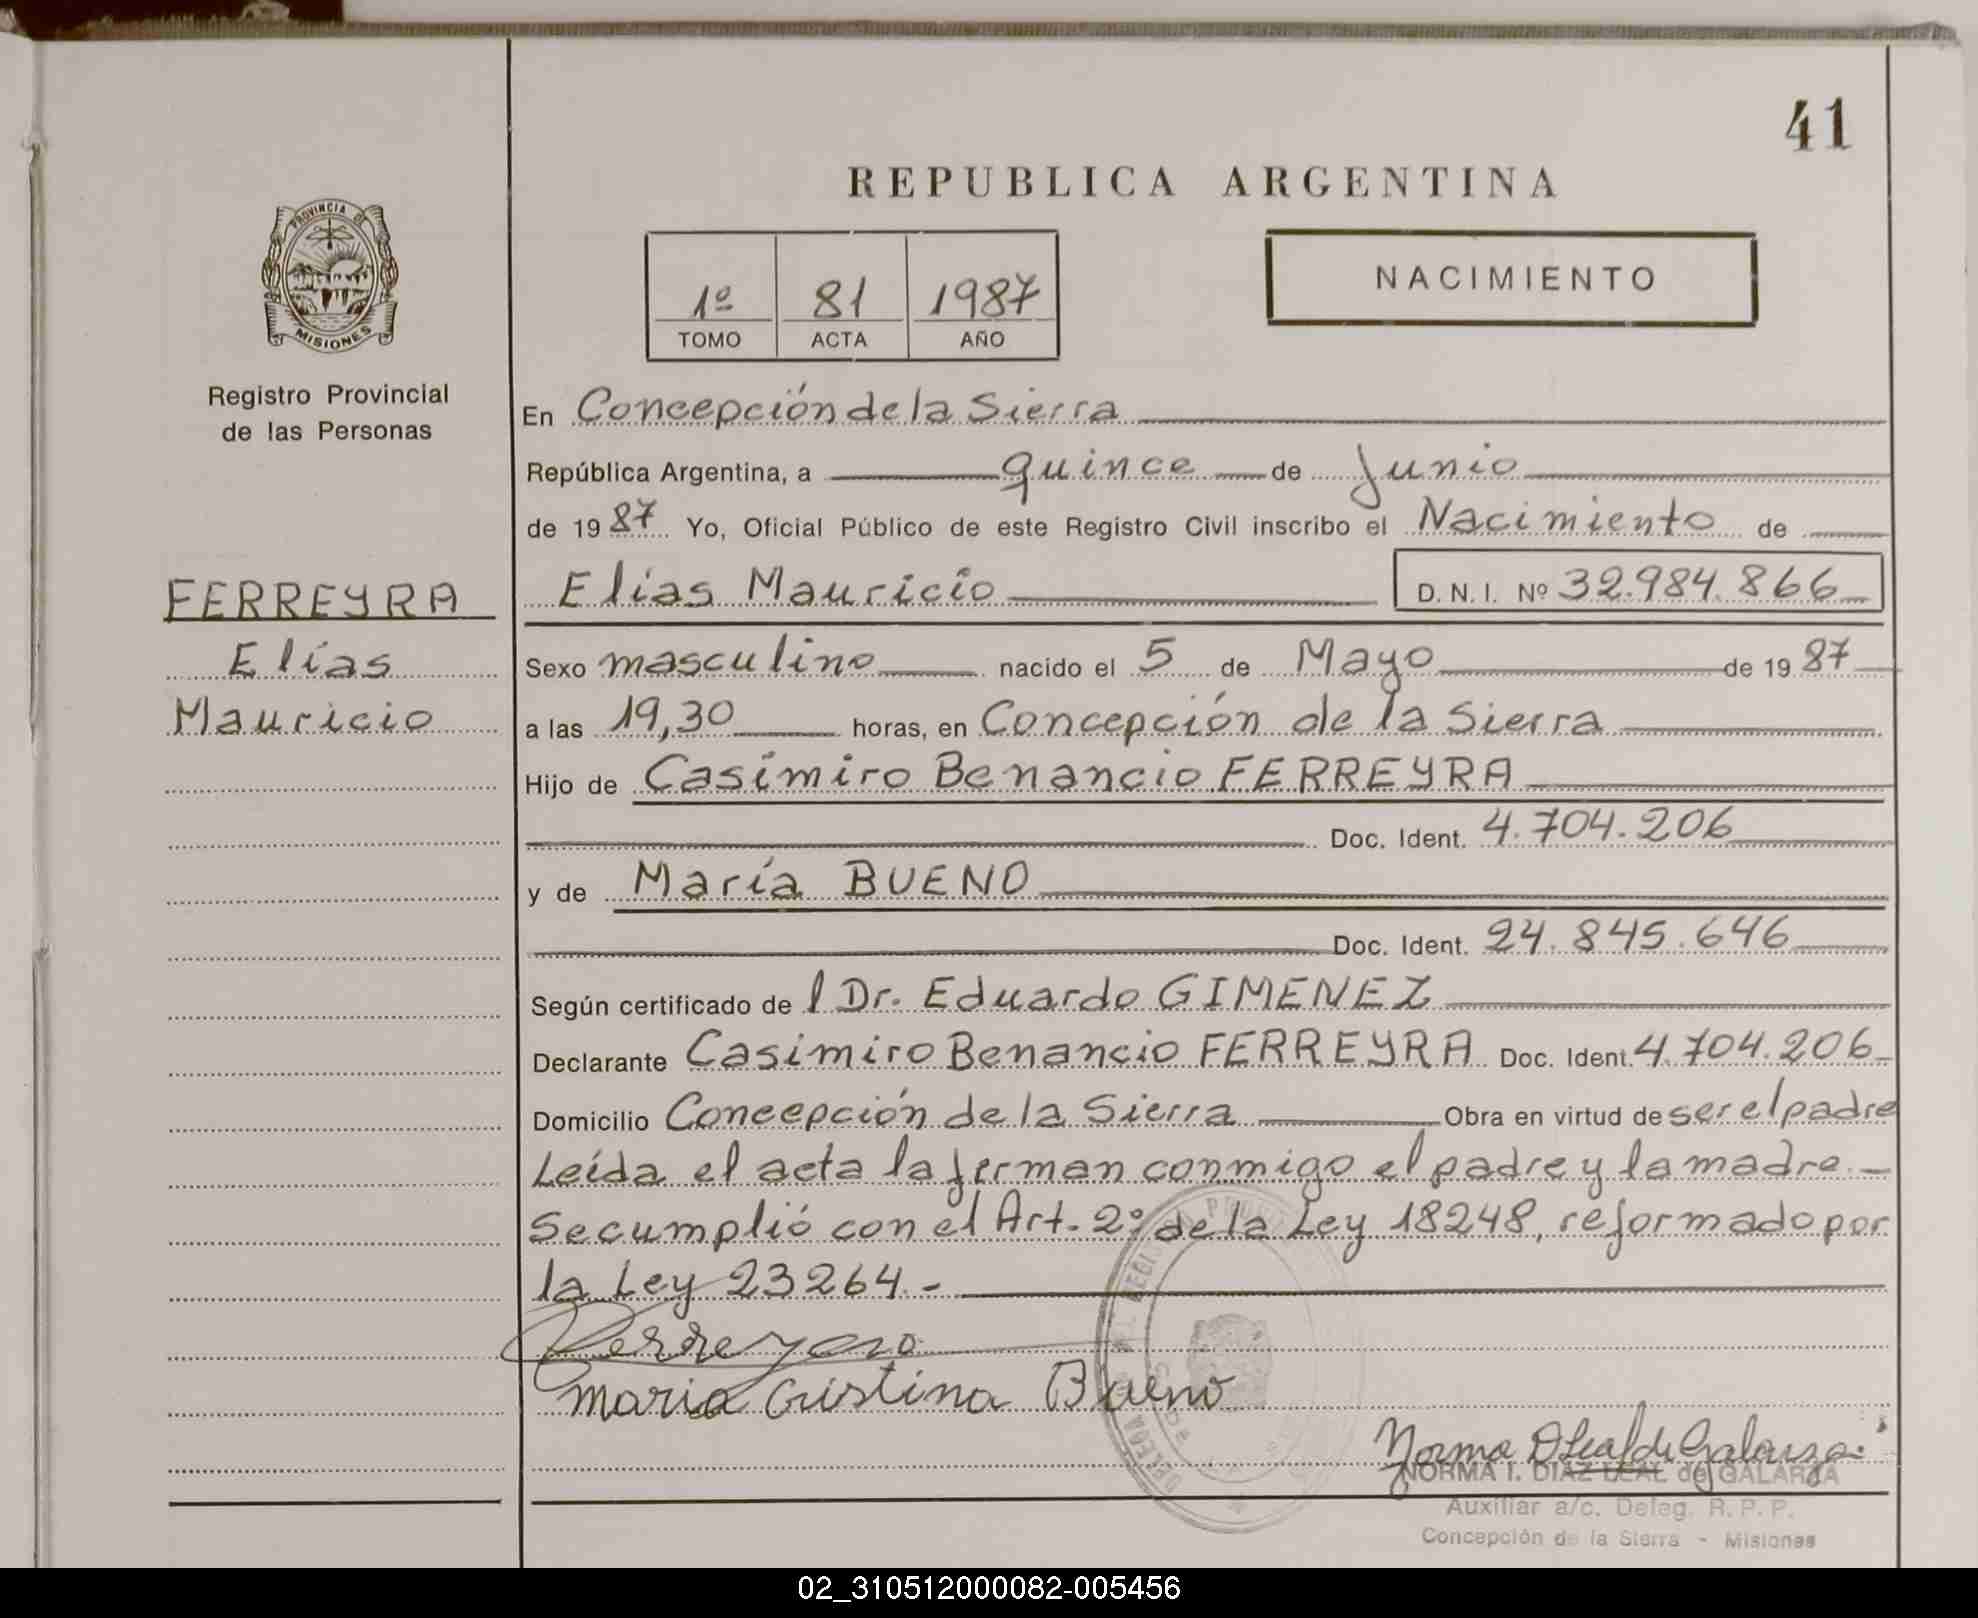 41
REPUBLICA ARGENTINA
PROVINCIA DE
MISIONES
Registro Provincial
de las Personas
1º 81 1987
TOMO ACTA AÑO
NACIMIENTO
En Concepción de la Sierra
República Argentina, a quince de Junio
de 1987 Yo, Oficial Público de este Registro Civil inscribo el Nacimiento de
FERREYRA
Elías Mauricio D.N.I. Nº 32.984.866
Elías
Mauricio
Sexo masculino nacido el 5 de Mayo de 1987
a las 19,30 horas, en Concepción de la Sierra
Hijo de Casimiro Benancio FERREYRA
Doc. Ident. 4.704.206
y de María BUENO
Doc. Ident. 24.845.646
Según certificado de l Dr. Eduardo GIMENEZ
Declarante Casimiro Benancio FERREYRA Doc. Ident. 4.704.206
Domicilio Concepción de la Sierra Obra en virtud de ser el padre
Leída el acta la firman conmigo el padre y la madre.-
Se cumplió con el Art. 2º de la Ley 18248, reformado por
la Ley 23264.-
Ferreyra
Maria Cristina Bueno
Norma D Leal de Galarza
NORMA I. DIAZ LEAL de GALARZA
Auxiliar a/c. Deleg. R.P.P.
Concepción de la Sierra - Misiones
02_310512000082-005456